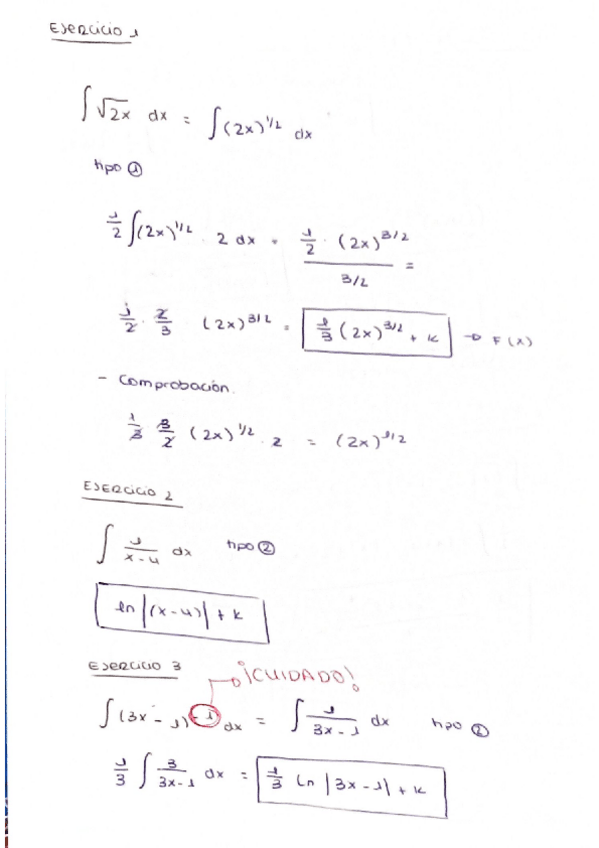 Ejercicio 1
∫√2x dx = ∫(2x)^1/2 dx
tipo ①
1/2 ∫(2x)^1/2 · 2 dx = (1/2 · (2x)^3/2) / (3/2) =
1/2 · 2/3 · (2x)^3/2 = 1/3 (2x)^3/2 + k → F(x)
- Comprobación.
1/3 · 3/2 (2x)^1/2 · 2 = (2x)^1/2
Ejercicio 2
∫ 1/(x-4) dx tipo ②
ln |(x-4)| + k
Ejercicio 3
¡CUIDADO!
∫(3x - 1)^-1 dx = ∫ 1/(3x-1) dx tipo ②
1/3 ∫ 3/(3x-1) dx = 1/3 ln |3x-1| + k